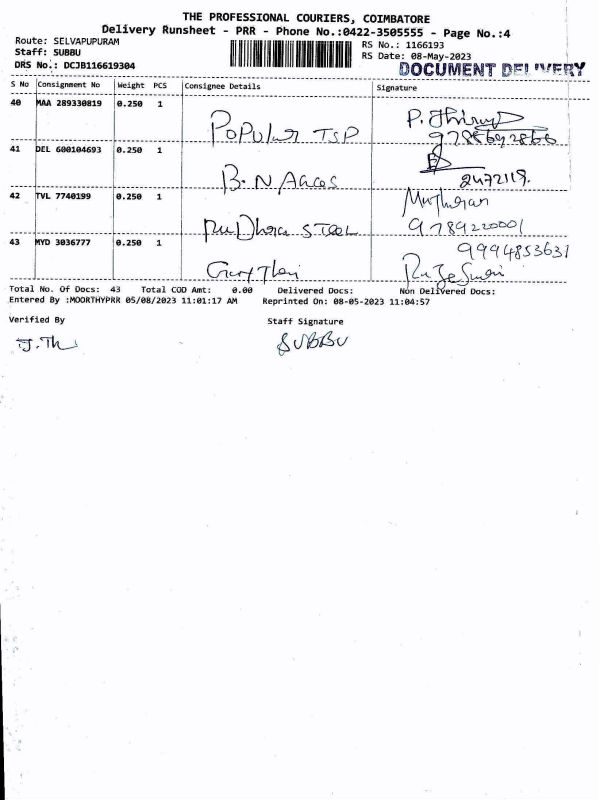 THE PROFESSIONAL COURIERS, COIMBATORE
Delivery Runsheet - PRR - Phone No.:0422-3505555 - Page No.:4
Route: SELVAPUPURAM
RS No.: 1166193
Staff: SUBBU
RS Date: 08-May-2023
DRS No.: DCJB116619304
DOCUMENT DELIVERY
S No Consignment No Weight PCS Consignee Details Signature
40 MAA 289330819 0.250 1
Popular TSP
41 DEL 600104693 0.250 1
B.N
2472119.
42 TVL 7740199 0.250 1
STEEL
9789220001
43 MYD 3036777 0.250 1
9994853631
Total No. Of Docs: 43 Total COD Amt: 0.00 Delivered Docs: Non Delivered Docs:
Entered By :MOORTHYPRR 05/08/2023 11:01:17 AM Reprinted On: 08-05-2023 11:04:57
Verified By Staff Signature
SUBBU